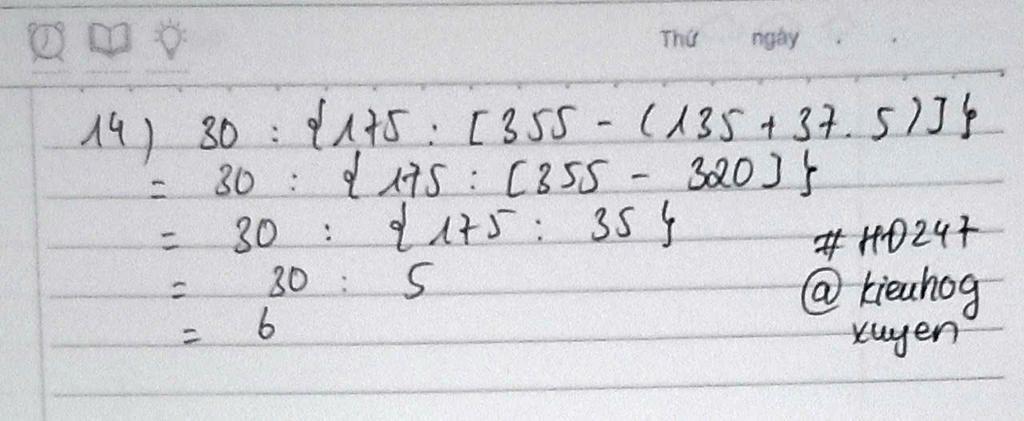 Thứ ngày . .
14) 30 : {175 : [355 - (135 + 37.5)]}
= 30 : {175 : [355 - 320]}
= 30 : {175 : 35}
= 30 : 5
= 6
#HĐ247
@kieuhog
xuyen